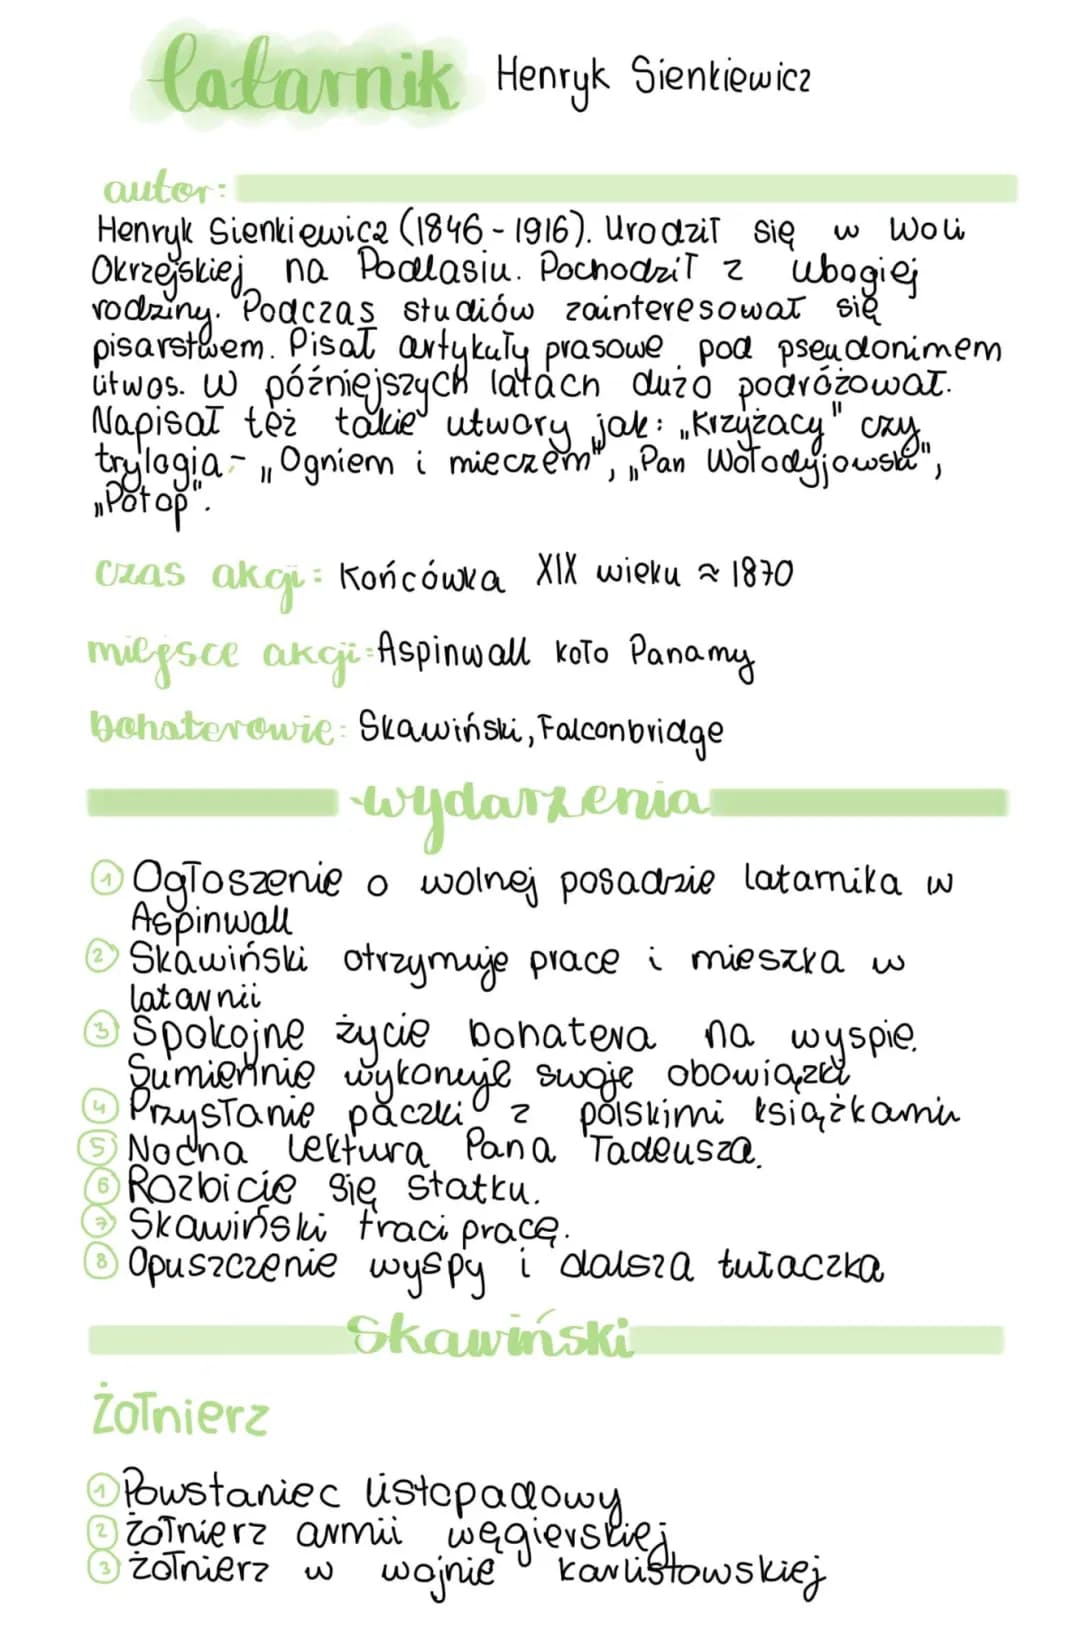 latarnik Henryk Sienkiewicz
autor:
Henryk Sienkiewicz (1846-1916). Urodził się w Woli
Okrzejskiej na Podlasiu. Pochodził z ubogiej
rodziny. Podczas studiów zainteresował się
pisarstwem. Pisał artykuły prasowe pod pseudonimem
Litwos. W późniejszych latach dużo podróżował.
Napisał też takie utwory jak: „Krzyżacy" czy
trylogia- „Ogniem i mieczem", „Pan Wołodyjowski",
„Potop".
czas akcji: Końcówka XIX wieku ≈ 1870
miejsce akcji: Aspinwall koło Panamy
bohaterowie: Skawiński, Falconbridge
wydarzenia
1 Ogłoszenie o wolnej posadzie latarnika w
Aspinwall
2 Skawiński otrzymuje pracę i mieszka w
latarnii
3 Spokojne życie bohatera na wyspie.
Sumiennie wykonuje swoje obowiązki
4 Przysłanie paczki z polskimi książkami
5 Nocna lektura Pana Tadeusza.
6 Rozbicie się statku.
7 Skawiński traci pracę.
8 Opuszczenie wyspy i dalsza tułaczka
Skawiński
Żołnierz
1 Powstaniec listopadowy
2 żołnierz armii węgierskiej
3 żołnierz w wojnie karlistowskiej